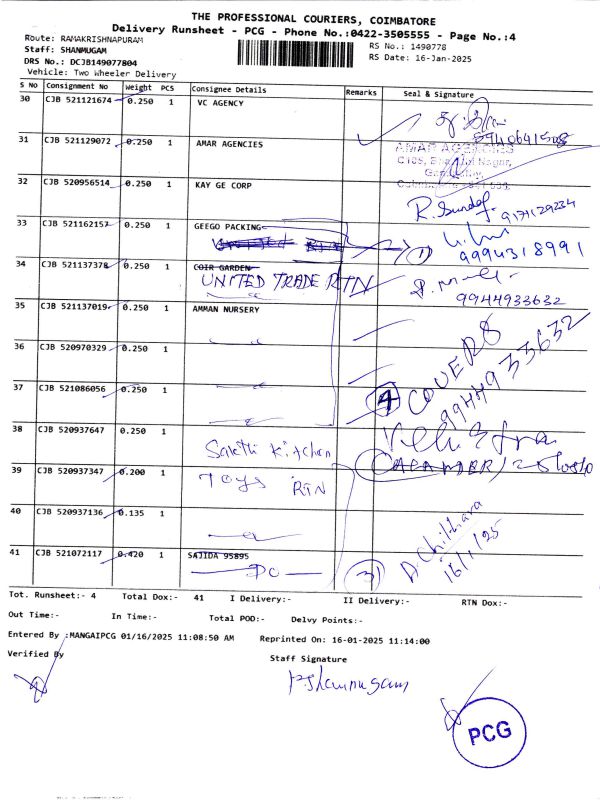 THE PROFESSIONAL COURIERS, COIMBATORE
Delivery Runsheet - PCG - Phone No.:0422-3505555 - Page No.:4
Route: RAMAKRISHNAPURAM
RS No.: 1490778
Staff: SHANMUGAM
RS Date: 16-Jan-2025
DRS No.: DCJB149077804
Vehicle: Two Wheeler Delivery
S No Consignment No Weight PCS Consignee Details Remarks Seal & Signature
30 CJB 521121674 0.250 1 VC AGENCY
31 CJB 521129072 0.250 1 AMAR AGENCIES
AMAR AGENCIES
32 CJB 520956514 0.250 1 KAY GE CORP
R. Sundar 9171129234
33 CJB 521162157 0.250 1 GEEGO PACKING
1 9994318991
34 CJB 521137378 0.250 1 COIR GARDEN
UNITED TRADE RTN
9944933632
35 CJB 521137019 0.250 1 AMMAN NURSERY
36 CJB 520970329 0.250 1
4 COVERS
9944933632
37 CJB 521086056 0.250 1
38 CJB 520937647 0.250 1
Sakthi Kitchen
39 CJB 520937347 0.200 1 Toys RTN
40 CJB 520937136 0.135 1
41 CJB 521072117 0.420 1 SAJIDA 95895
DC
3
16/1/25
Tot. Runsheet:- 4 Total Dox:- 41 I Delivery:- II Delivery:- RTN Dox:-
Out Time:- In Time:- Total POD:- Delvy Points:-
Entered By :MANGAIPCG 01/16/2025 11:08:50 AM Reprinted On: 16-01-2025 11:14:00
Verified By
Staff Signature
P. Shanmugam
PCG